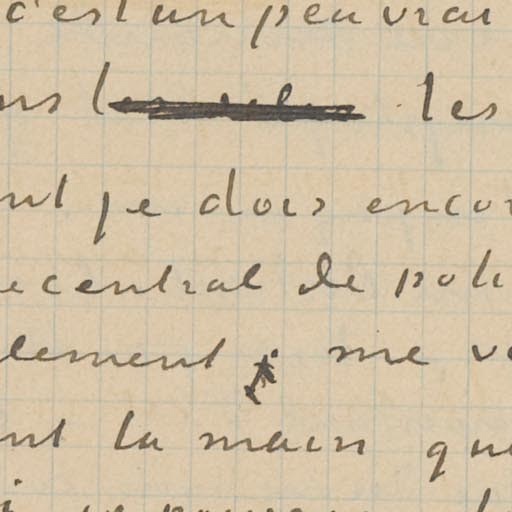 c'est un peu vrai
ns les
nt je dois encor
e central de poli
lement me v
nt la main que